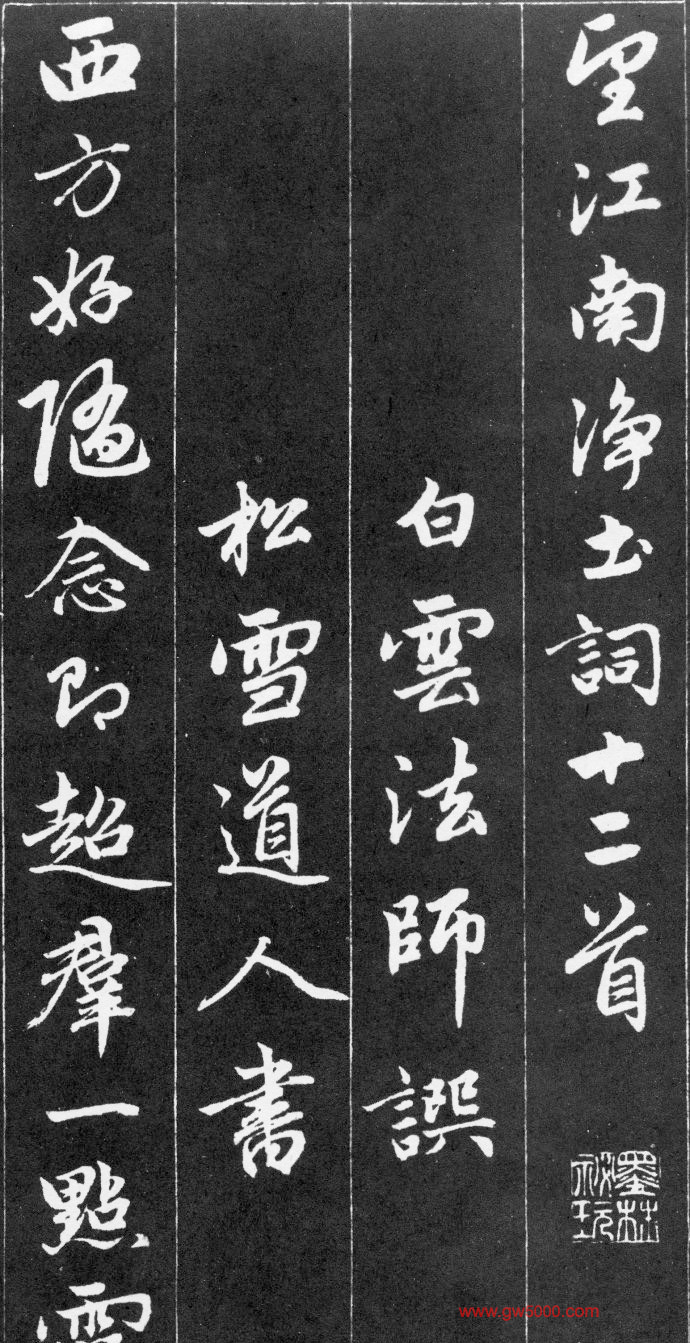 望江南淨土詞十二首
墨林祕玩
白雲法師譔
松雪道人書
西方好隨念即超羣一點雪
www.gw5000.com